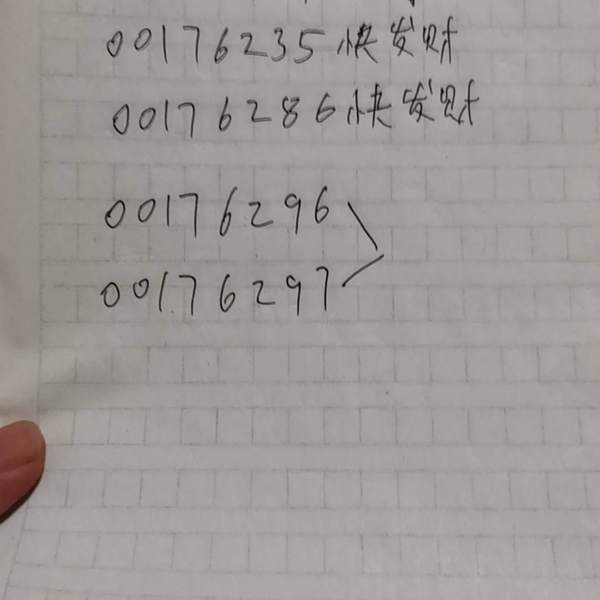 00176235快发财
00176286快发财
00176296
00176297